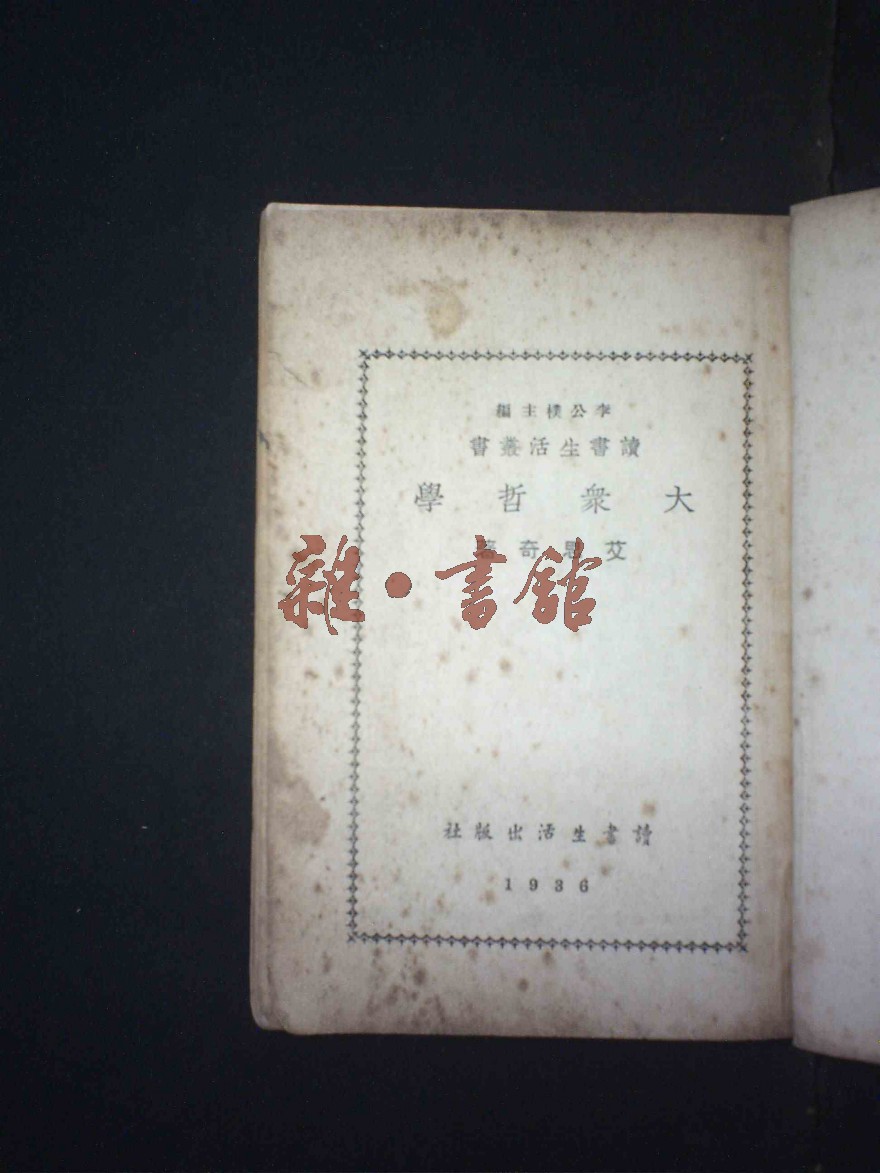 李公樸主編
讀書生活叢書
大衆哲學
艾思奇著
雜·書館
讀書生活出版社
1936